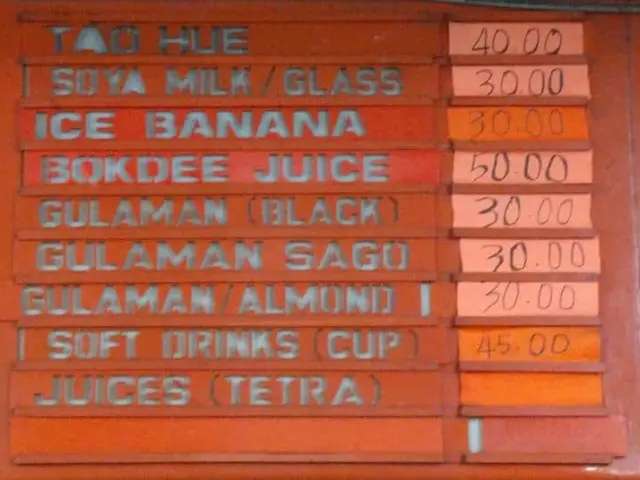 TAO HUE 40.00
SOYA MILK/GLASS 30.00
ICE BANANA 30.00
BOKDEE JUICE 50.00
GULAMAN (BLACK) 30.00
GULAMAN SAGO 30.00
GULAMAN/ALMOND 30.00
SOFT DRINKS (CUP) 45.00
JUICES (TETRA)